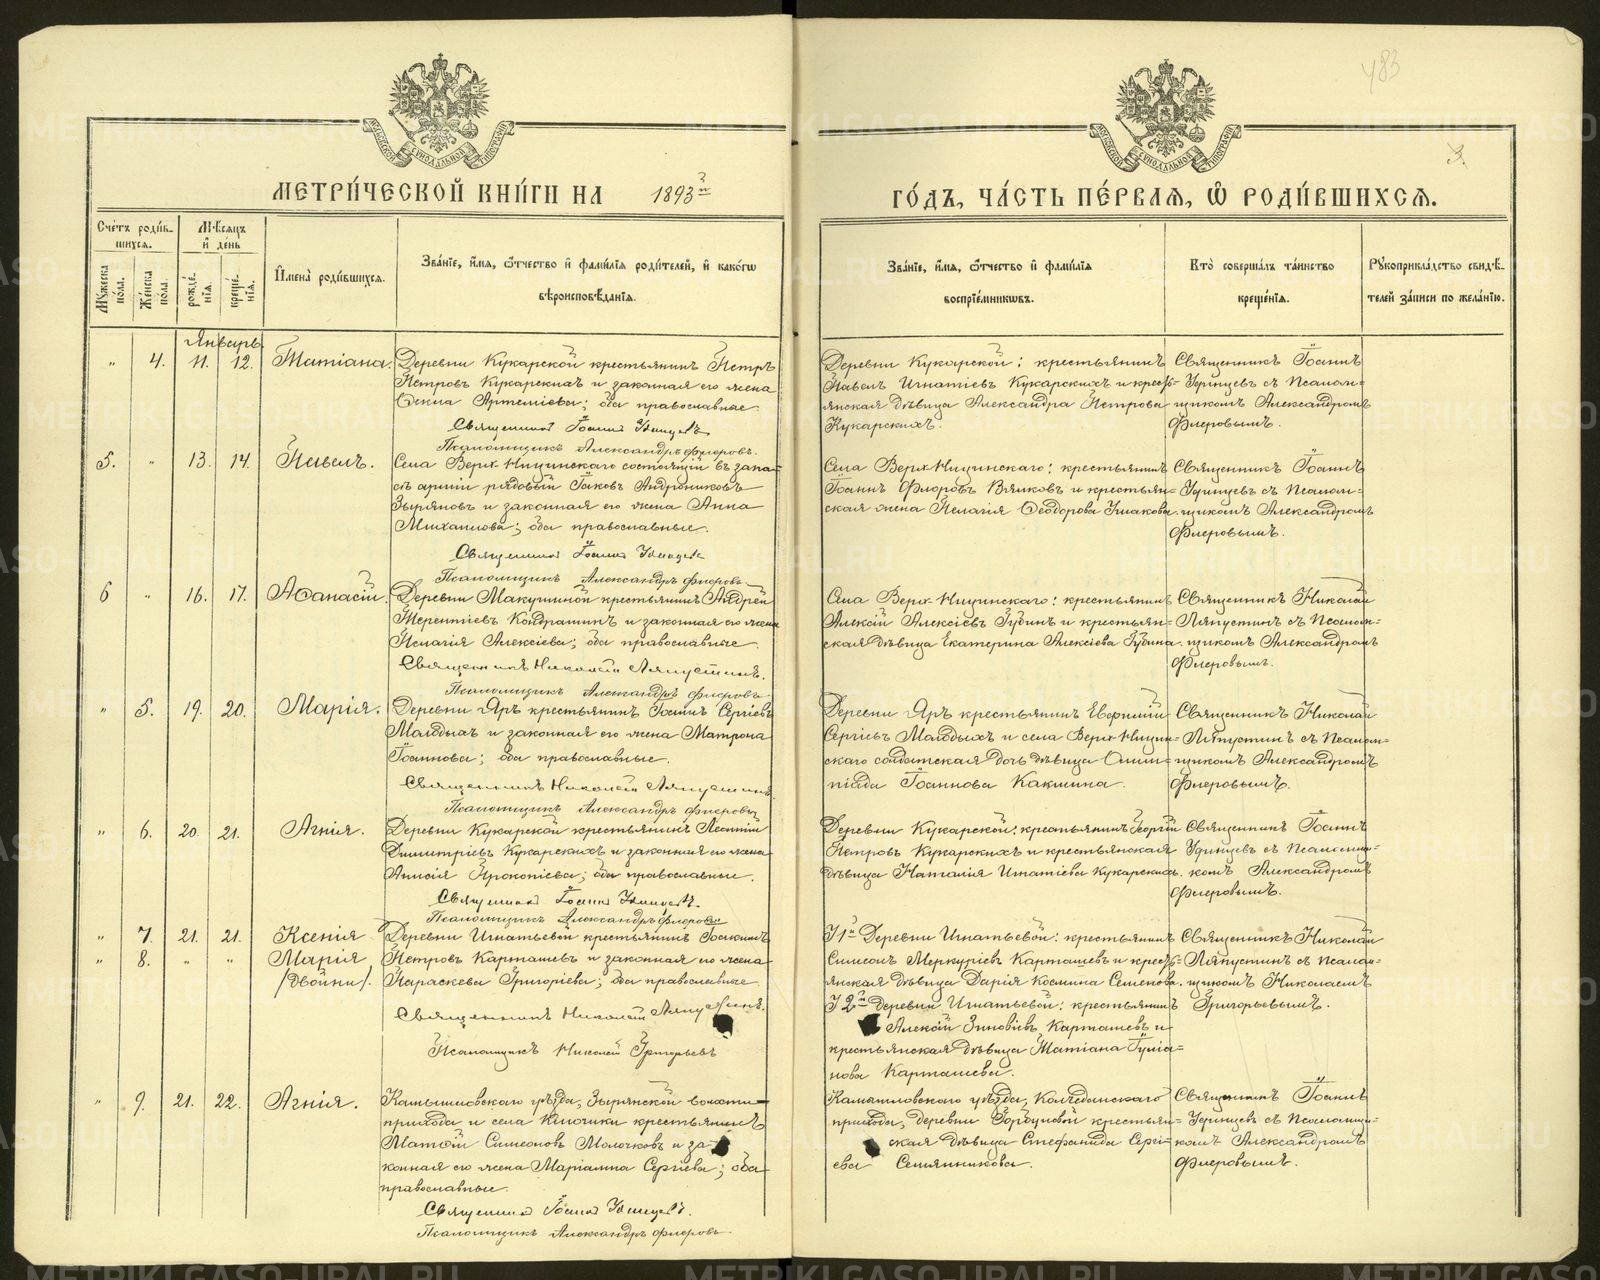 483
3.
МОСКОВСКОЙ СѴНОДАЛЬНОЙ ТИПОГРАФІИ
МОСКОВСКОЙ СѴНОДАЛЬНОЙ ТИПОГРАФІИ
МЕТРИ́ЧЕСКОЙ КНИ́ГИ НА 1893й
ГО́ДЪ, ЧА́СТЬ ПЕ́РВАЯ, Ѡ РОДИ́ВШИХСЯ.
Сче́тъ роди́в-
шихся.
Мꙋжеска по́ла.
Же́нска по́ла.
Мѣ́сяцъ
и́ де́нь
рожде́-
нїя.
креще́-
нїя.
И҆мена̀ роди́вшихся.
Зва́нїе, и҆́мя, ѻ҆́тчество и҆ фами́лїя роди́телей, и҆ како́гѡ
вѣроисповѣ́данїя.
Зва́нїе, и҆́мя, ѻ҆́тчество и҆ фами́лїя
воспрїе́мникѡвъ.
Кто̀ соверша́лъ та́инство
креще́нїя.
Рꙋкоприкла́дство свидѣ́-
телей за́писи по жела́нїю.
Январь.
" 4. 11. 12. Татіана.
Деревни Кукарской крестьянинъ Петръ
Петровъ Кукарскихъ и законная его жена
Ѳекла Артеміева; оба православные.
Священникъ Іоаннъ Удинцевъ
Псаломщикъ Александръ Флеровъ.
Деревни Кукарской: крестьянинъ
Павелъ Игнатіевъ Кукарскихъ и кресть-
янская дѣвица Александра Петрова
Кукарскихъ.
Священникъ Іоаннъ
Удинцевъ съ Псалом-
щикомъ Александромъ
Флеровымъ.
5. " 13. 14. Павелъ.
Села Верх-Ницинскаго состоящій въ запа-
сѣ арміи рядовый Іаковъ Андрониковъ
Зыряновъ и законная его жена Анна
Михаилова; оба православные.
Священникъ Іоаннъ Удинцевъ
Псаломщикъ Александръ Флеровъ.
Села Верх-Ницинскаго: крестьянинъ
Іоаннъ Флоровъ Вялковъ и крестьян-
ская жена Пелагія Ѳеодорова Ушакова.
Священникъ Іоаннъ
Удинцевъ съ Псалом-
щикомъ Александромъ
Флеровымъ.
6 " 16. 17. Аѳанасій.
Деревни Макушиной крестьянинъ Андрей
Терентіевъ Кондрашинъ и законная его жена
Пелагія Алексіева; оба православные.
Священникъ Николай Ляпустинъ.
Псаломщикъ Александръ Флеровъ.
Села Верх-Ницинскаго: крестьянинъ
Алексій Алексіевъ Губинъ и крестьян-
ская дѣвица Екатерина Алексіева Губина.
Священникъ Николай
Ляпустинъ съ Псалом-
щикомъ Александромъ
Флеровымъ.
" 5. 19. 20. Марія.
Деревни Яръ крестьянинъ Іоаннъ Сергіевъ
Молодыхъ и законная его жена Матрона
Іоаннова; оба православные.
Священникъ Николай Ляпустинъ
Псаломщикъ Александръ Флеровъ
Деревни Яръ крестьянинъ Евфимій
Сергіевъ Молодыхъ и села Верх-Ницин-
скаго солдатская дочь дѣвица Олим-
піада Іоаннова Какшина.
Священникъ Николай
Ляпустинъ съ Псалом-
щикомъ Александромъ
Флеровымъ.
" 6. 20. 21. Агнія.
Деревни Кукарской крестьянинъ Леонтій
Димитріевъ Кукарскихъ и законная его жена
Анисія Прокопіева; оба православные.
Священникъ Іоаннъ Удинцевъ.
Псаломщикъ Александръ Флеровъ
Деревни Кукарской: крестьянинъ Георгій
Петровъ Кукарскихъ и крестьянская
дѣвица Наталія Игнатіева Кукарскихъ.
Священникъ Іоаннъ
Удинцевъ съ Псаломщи-
комъ Александромъ
Флеровымъ.
" 7. 21. 21. Ксенія
" 8. " " Марія
/Двойни/.
Деревни Игнатьевой крестьянинъ Іоакимъ
Петровъ Карташевъ и законная его жена
Параскева Григоріева; оба православные.
Священникъ Николай Ляпустинъ.
Псаломщикъ Николай Григорьевъ
У 1й Деревни Игнатьевой: крестьянинъ
Симеонъ Меркуріевъ Карташевъ и кресть-
янская дѣвица Дарія Космина Семенова.
У 2й деревни Игнатьевой: крестьянинъ
Алексій Зиновіевъ Карташевъ и
крестьянская дѣвица Татіана Іуліа-
нова Карташева.
Священникъ Николай
Ляпустинъ съ Псалом-
щикомъ Николаемъ
Григорьевымъ.
" 9. 21. 22. Агнія.
Камышловскаго уѣзда, Зырянской волости
прихода и села крестьянинъ
Матѳій Симеоновъ Молочковъ и за-
конная его жена Маріамна Сергіева; оба
православные.
Священникъ Іоаннъ Удинцевъ.
Псаломщикъ Александръ Флеровъ.
Камышловскаго уѣзда, Колчеданскаго
прихода, деревни Горбуновой крестьян-
ская дѣвица Стефанида Серги-
ева Семянникова.
Священникъ Іоаннъ
Удинцевъ съ Псаломщи-
комъ Александромъ
Флеровымъ.
METRIKI.GASO-URAL.RU